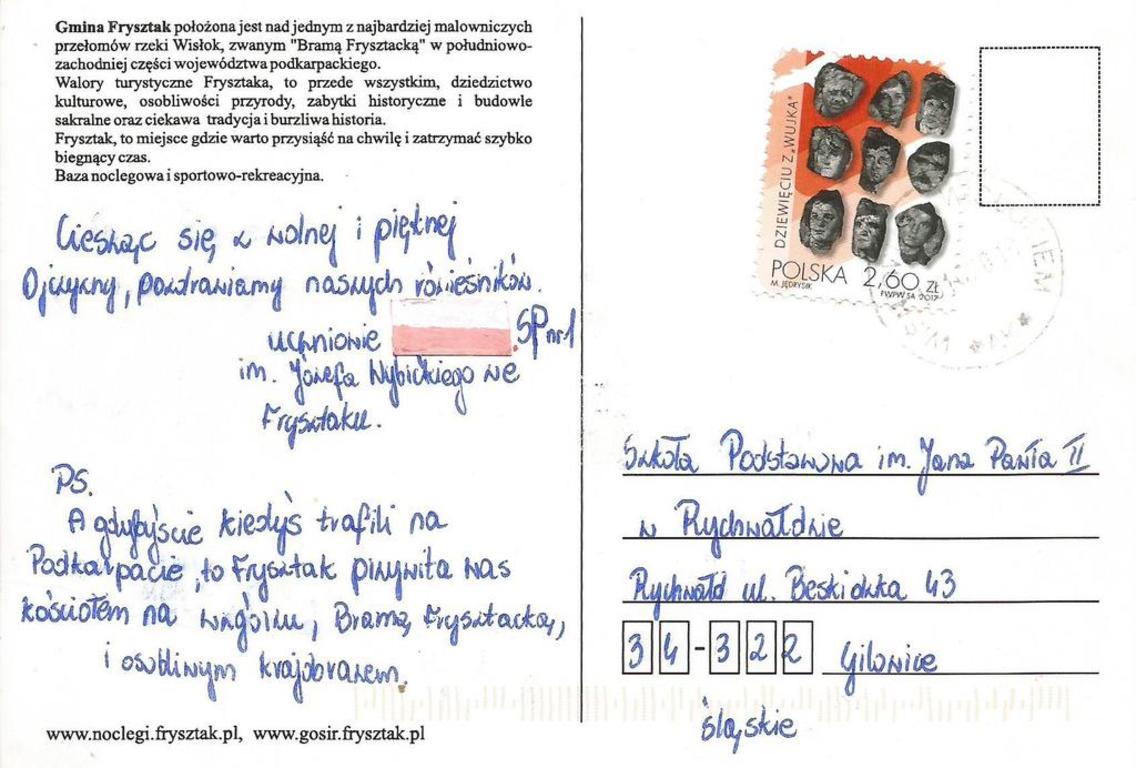 Gmina Frysztak położona jest nad jednym z najbardziej malowniczych
przełomów rzeki Wisłok, zwanym "Bramą Frysztacką" w południowo-
zachodniej części województwa podkarpackiego.
Walory turystyczne Frysztaka, to przede wszystkim, dziedzictwo
kulturowe, osobliwości przyrody, zabytki historyczne i budowle
sakralne oraz ciekawa tradycja i burzliwa historia.
Frysztak, to miejsce gdzie warto przysiąść na chwilę i zatrzymać szybko
biegnący czas.
Baza noclegowa i sportowo-rekreacyjna.
Ciesząc się z wolnej i pięknej
Ojczyzny, pozdrawiamy naszych rówieśników.
uczniowie SP nr 1
im. Józefa Wybickiego we
Frysztaku.
PS.
A gdybyście kiedyś trafili na
Podkarpacie, to Frysztak przywita was
kościołem na wzgórzu, Bramą Frysztacką,
i osobliwym krajobrazem.
www.noclegi.frysztak.pl, www.gosir.frysztak.pl
DZIEWIĘCIU Z „WUJKA"
POLSKA 2,60 ZŁ
M. JĘDRYSIK PWPW SA 2017
Szkoła Podstawowa im. Jana Pawła II
w Rychwałdzie
Rychwałd ul. Beskidzka 43
34-322 Gilowice
śląskie